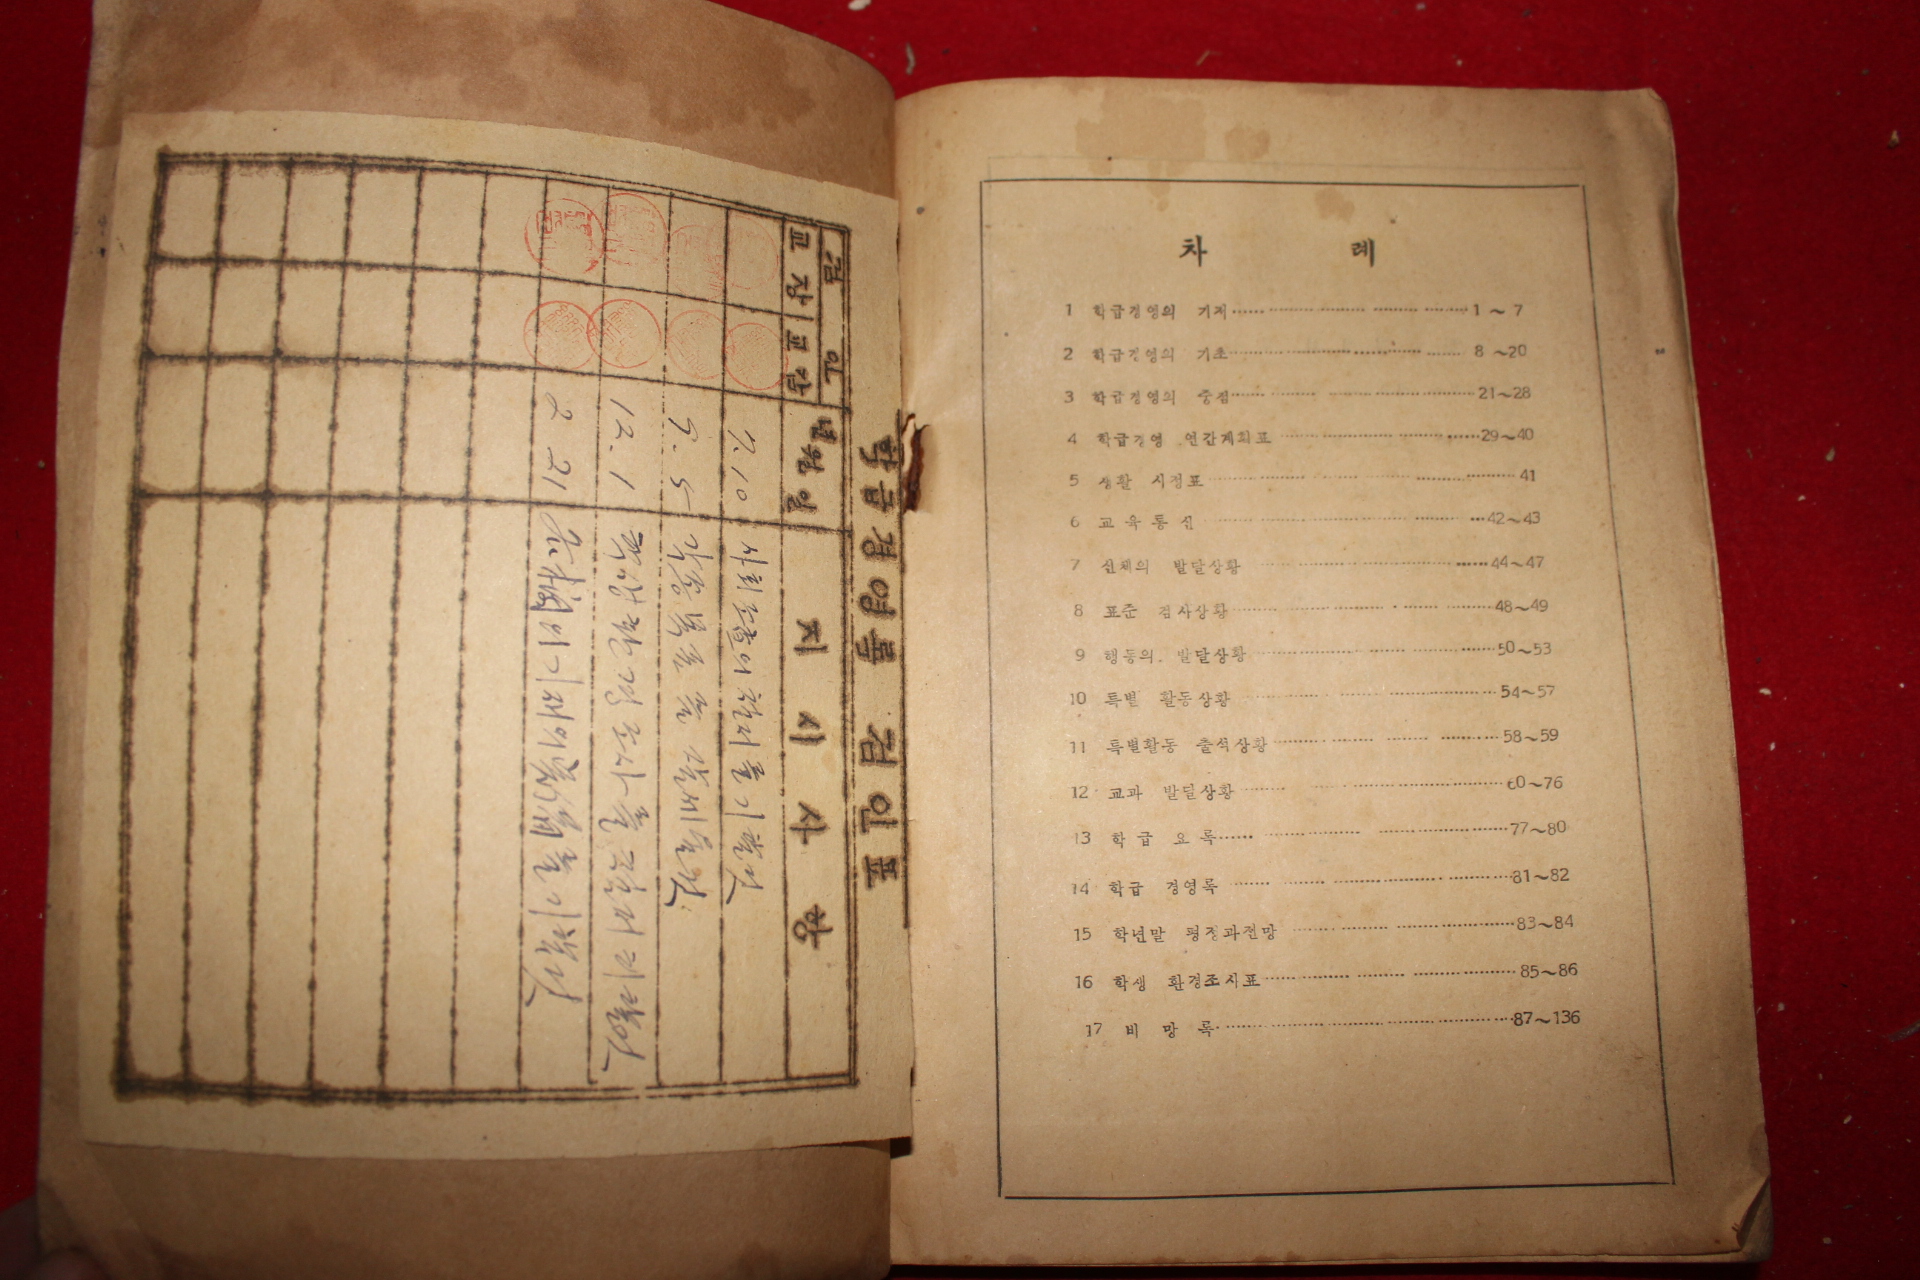 학급경영록 검인표
검 인
교장 교감
년월일
지 시 사 항
7. 10
9. 5
12. 1
2. 21
차 례
1 학급경영의 기저 1 ~ 7
2 학급경영의 기초 8 ~20
3 학급경영의 중점 21~28
4 학급경영 연간계획표 29~40
5 생활 시정표 41
6 교육통신 42~43
7 신체의 발달상황 44~47
8 표준 검사상황 48~49
9 행동의 발달상황 50~53
10 특별 활동상황 54~57
11 특별활동 출석상황 58~59
12 교과 발달상황 60~76
13 학급 요록 77~80
14 학급 경영록 81~82
15 학년말 평정과전망 83~84
16 학생 환경조사표 85~86
17 비 망 록 87~136